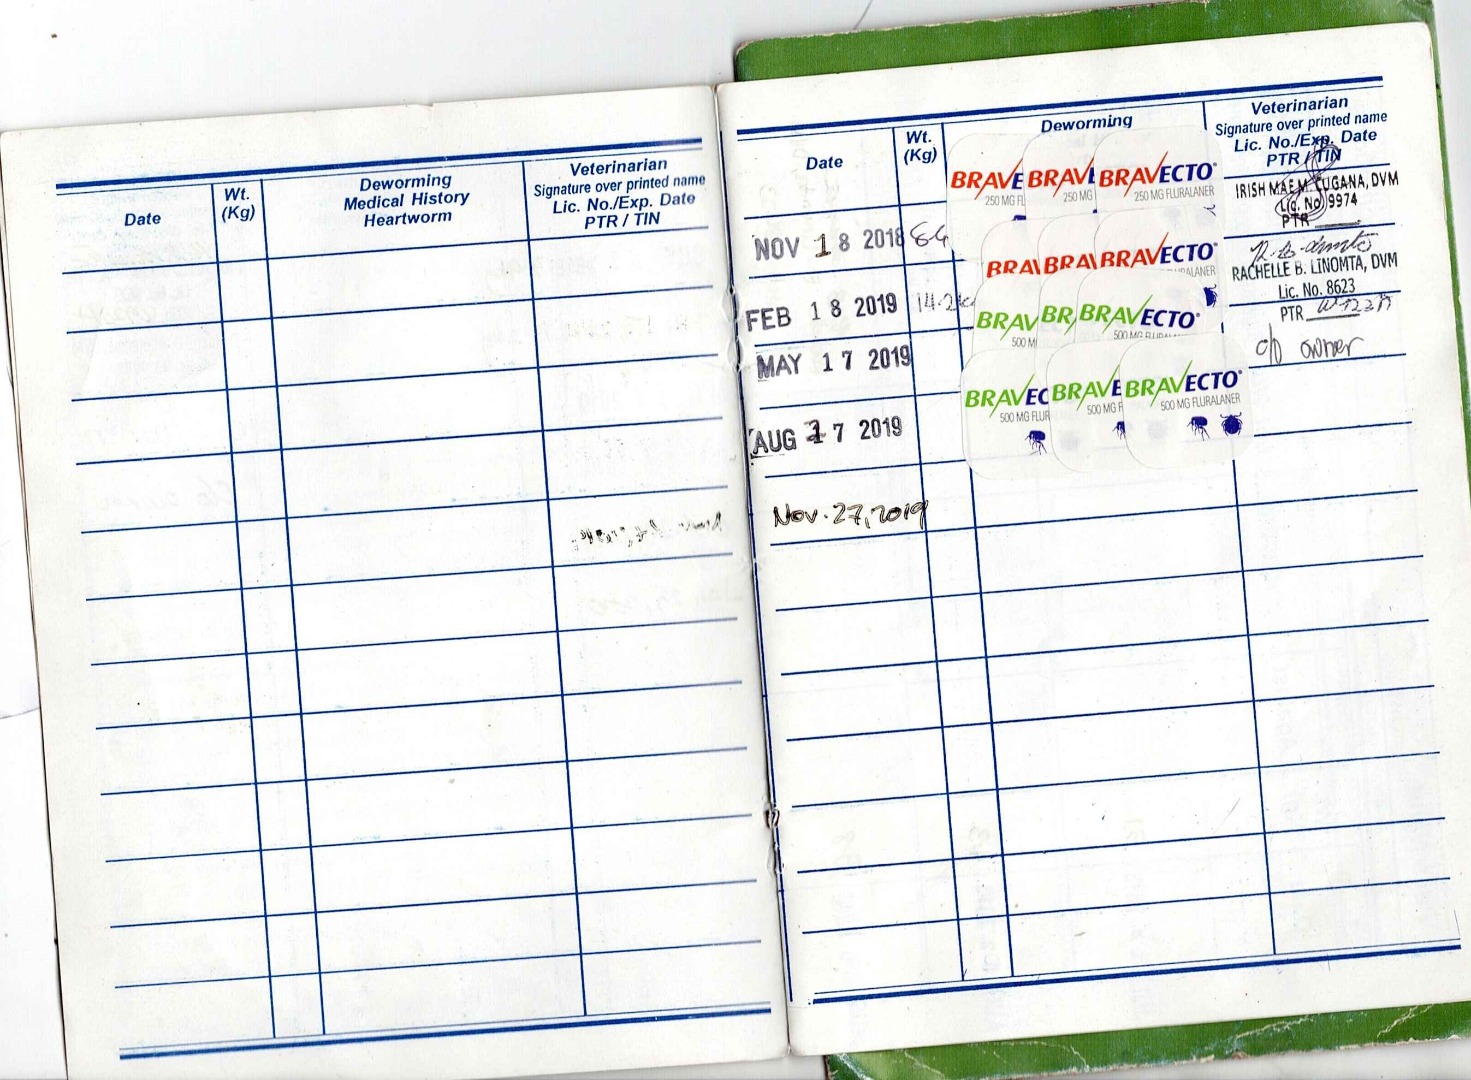 Date
Wt.
(Kg)
Deworming
Medical History
Heartworm
Veterinarian
Signature over printed name
Lic. No./Exp. Date
PTR / TIN
Date
Wt.
(Kg)
Deworming
Veterinarian
Signature over printed name
Lic. No./Exp. Date
PTR / TIN
BRAVE BRAVE BRAVECTO
250 MG FL 250 MG 250 MG FLURALANER
IRISH MAE M. CUGANA, DVM
Lic. No. 9974
PTR
NOV 18 2018
BRAV BRAV BRAVECTO
RALANER
RACHELLE B. LINOMTA, DVM
Lic. No. 8623
PTR
FEB 18 2019 14.2kg
BRAV BR BRAVECTO
500 M 500 MG FLURAL
c/o owner
MAY 17 2019
BRAVEC BRAVE BRAVECTO
500 MG FLUR 500 MG F 500 MG FLURALANER
AUG 27 2019
Nov. 27, 2019